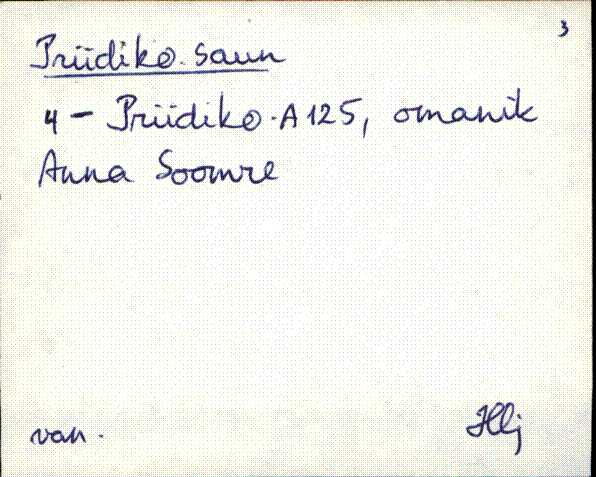 3
Priidiko. saun
4 - Priidiko. A 125, omanik
Anna Soomre
van.
Hlj